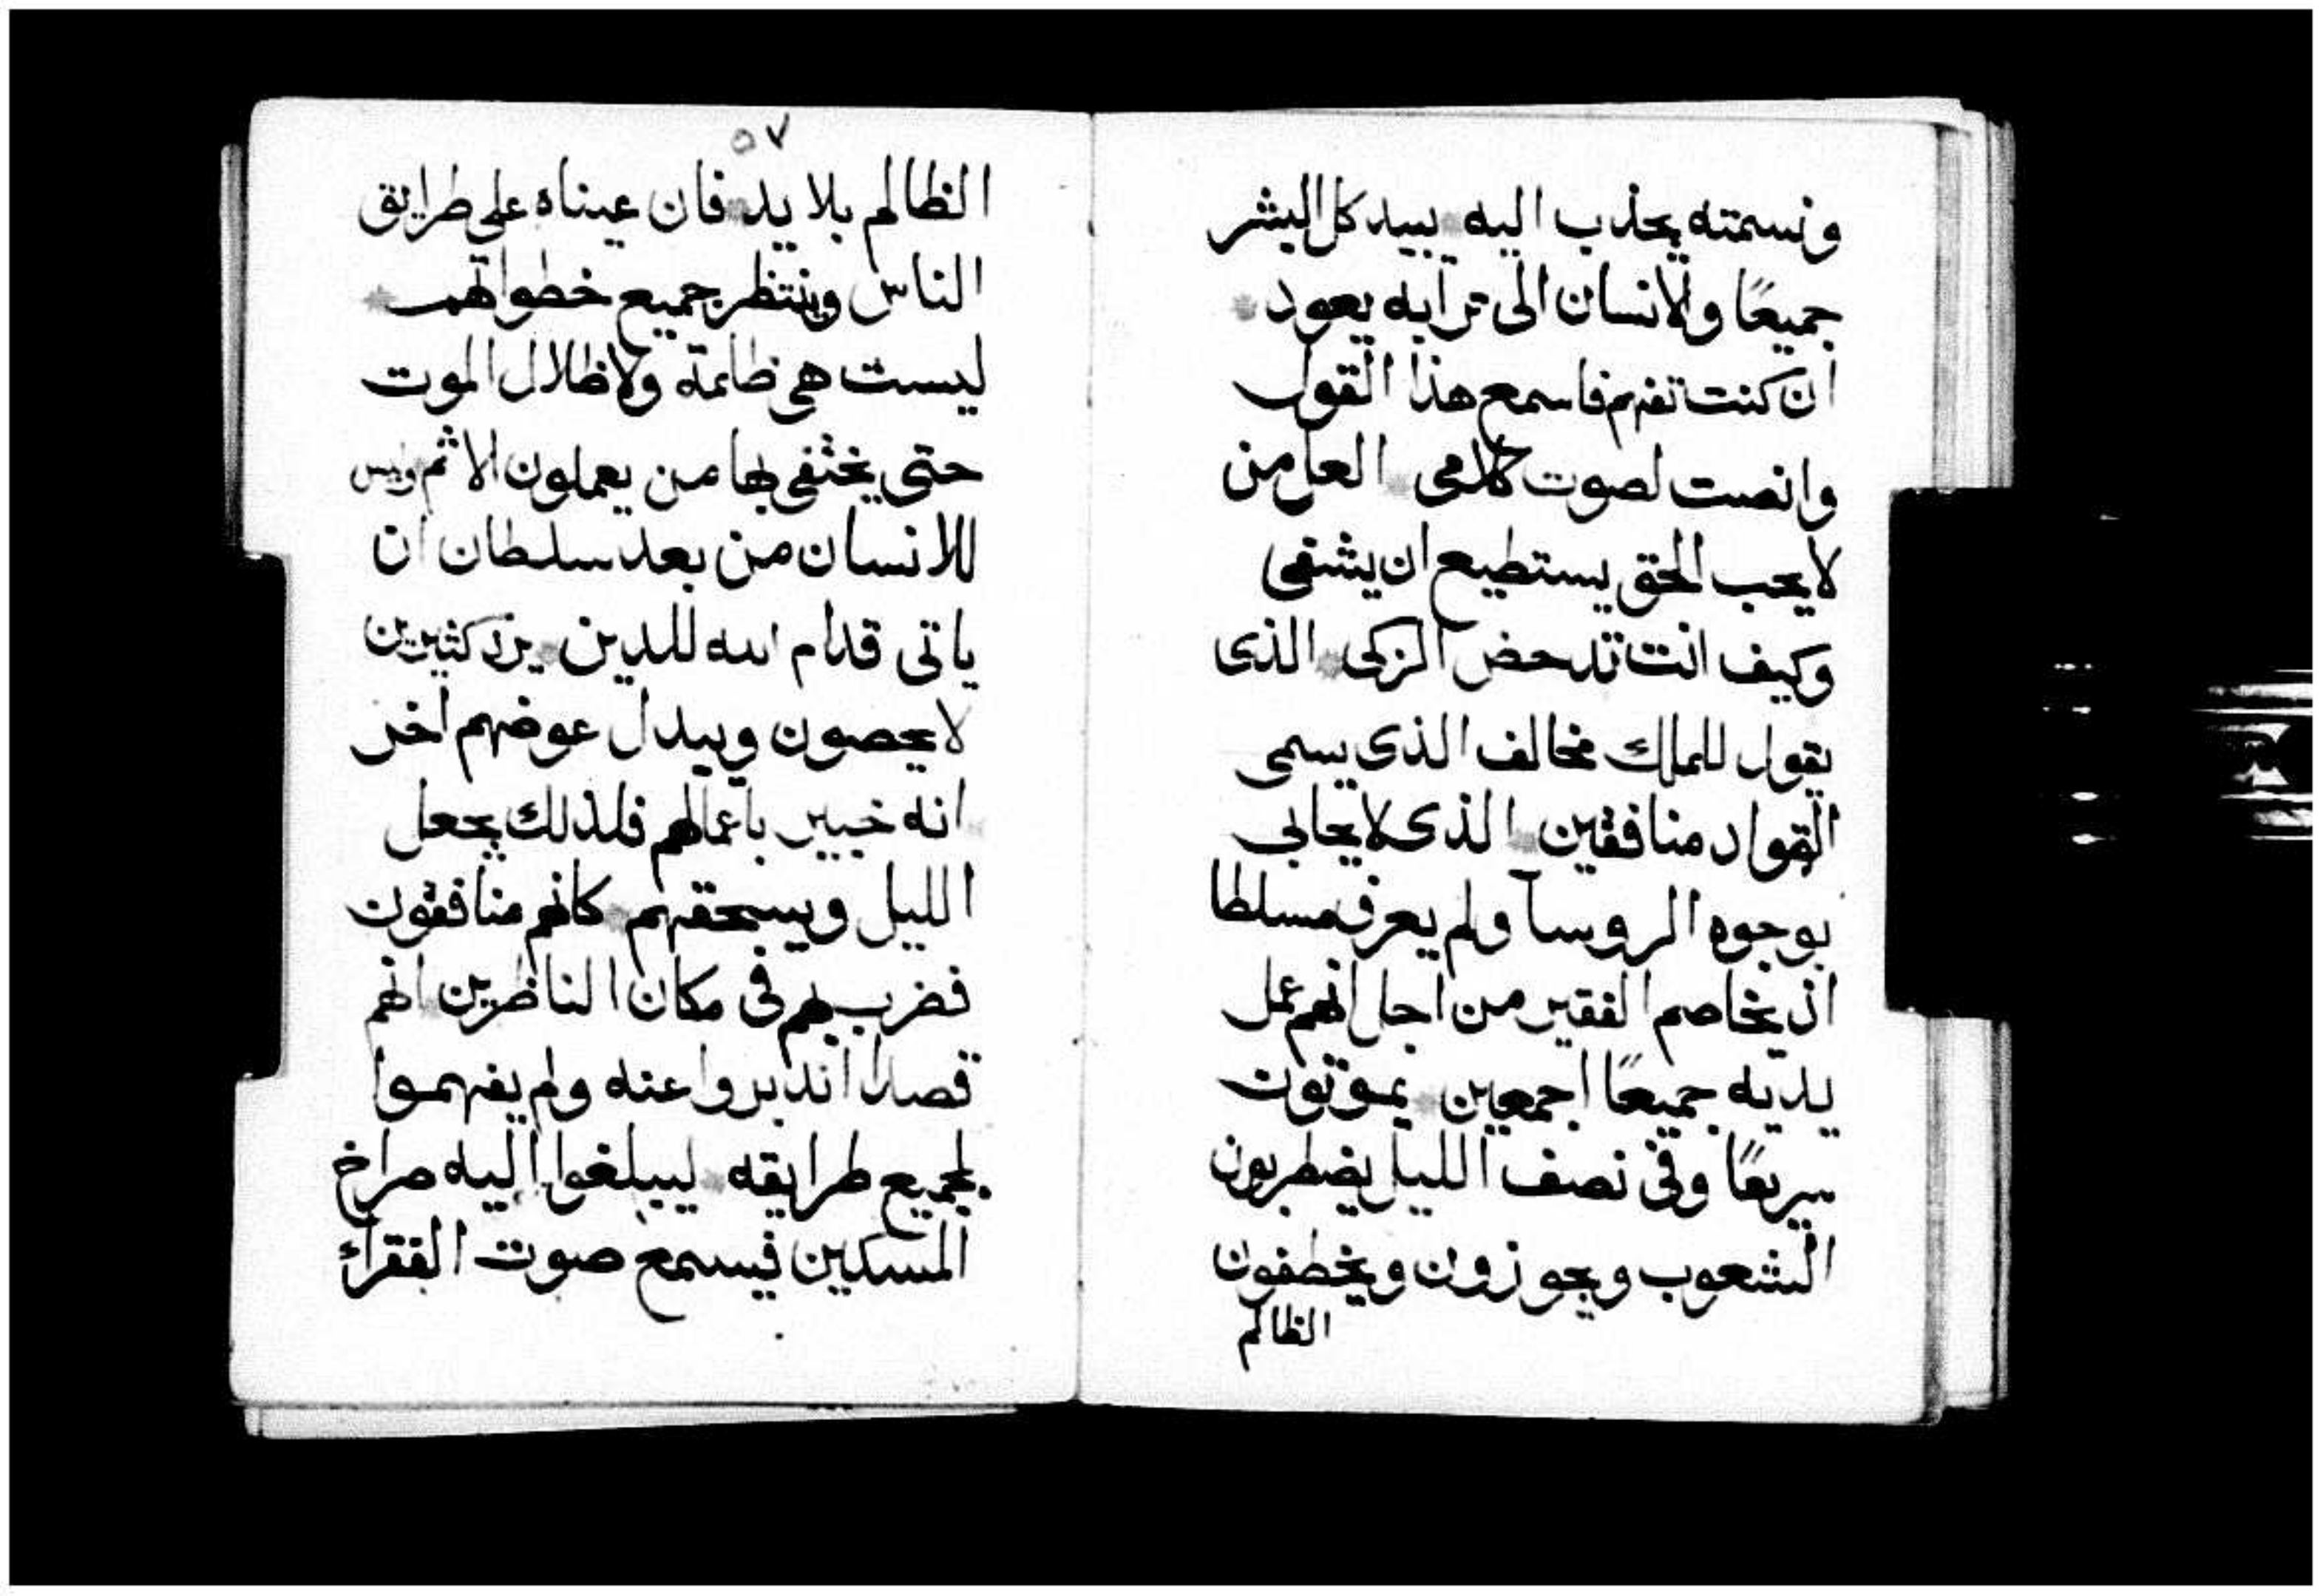 ونسمته يجذب اليه يبيد كل البشر
جميعًا والانسان الى ترابه يعود
ان كنت تفهم فاسمع هذا القول
وانصت لصوت كلامى العل من
لا يحب الحق يستطيع ان يشفى
وكيف انت تدحض الزكى الذى
يقول للملك مخالف الذى يسمى
القواد منافقين الذى لا يحابى
بوجوه الروسآ ولم يعرف مسلطا
اذ يخاصم الفقير من اجل انهم عمل
يديه جميعًا اجمعين يموتون
سريعًا وفى نصف الليل يضطربون
الشعوب ويجوزون ويخطفون
الظالم
٥٧
الظالم بلا يد فان عيناه على طرايق
الناس وينتظر جميع خطواتهم
ليست هى ظلمة ولا ظلال الموت
حتى يختفى بها من يعملون الاثم وليس
للانسان من بعد سلطان ان
ياتى قدام الله للدين يرذ كثيرين
لا يحصون ويبدل عوضهم اخر
انه خبير باعمالهم فلذلك يجعل
الليل ويسحقهم كانهم منافقون
فضرب بهم فى مكان الناظرين انهم
قصدا اندبروا عنه ولم يفهموا
بجميع طرايقه ليبلغوا اليه صراخ
المسكين فيسمع صوت الفقراء